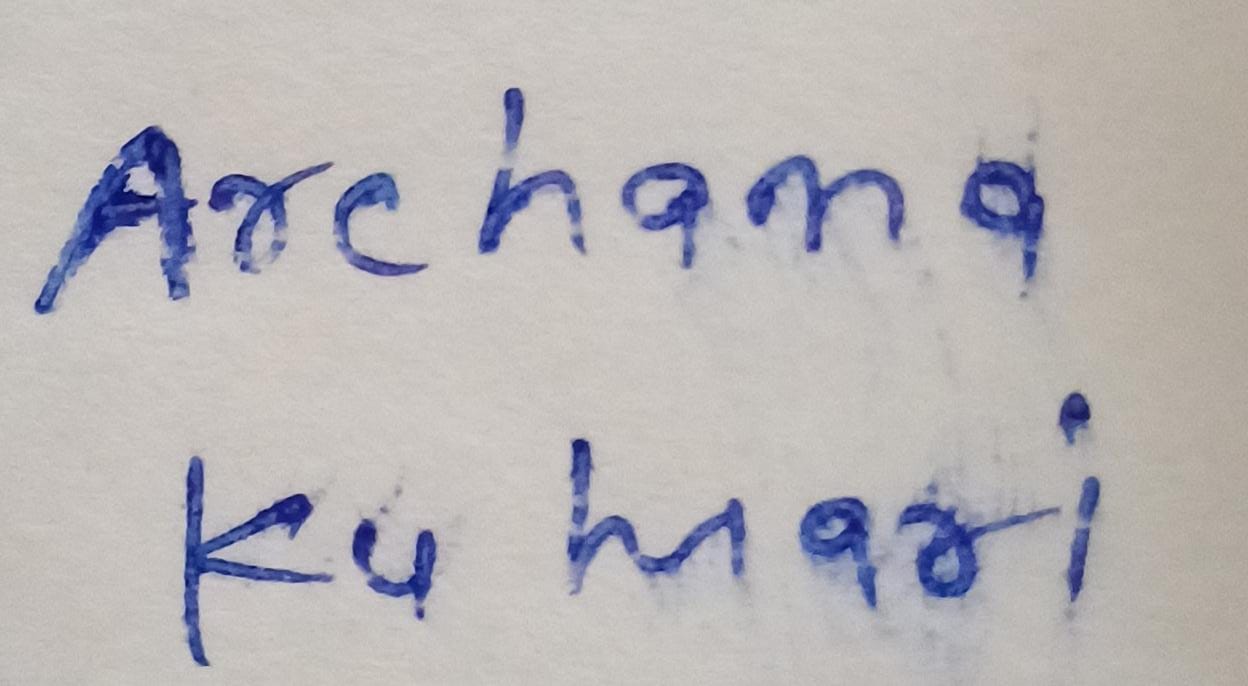 Archana
Kumari